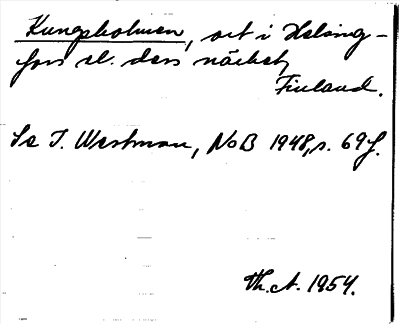 Kungsholmen, ort i Helsing-
fors el. dess närhet,
Finland.
Se I. Westman, NoB 1948, s. 69 f.
Th. A. 1954.